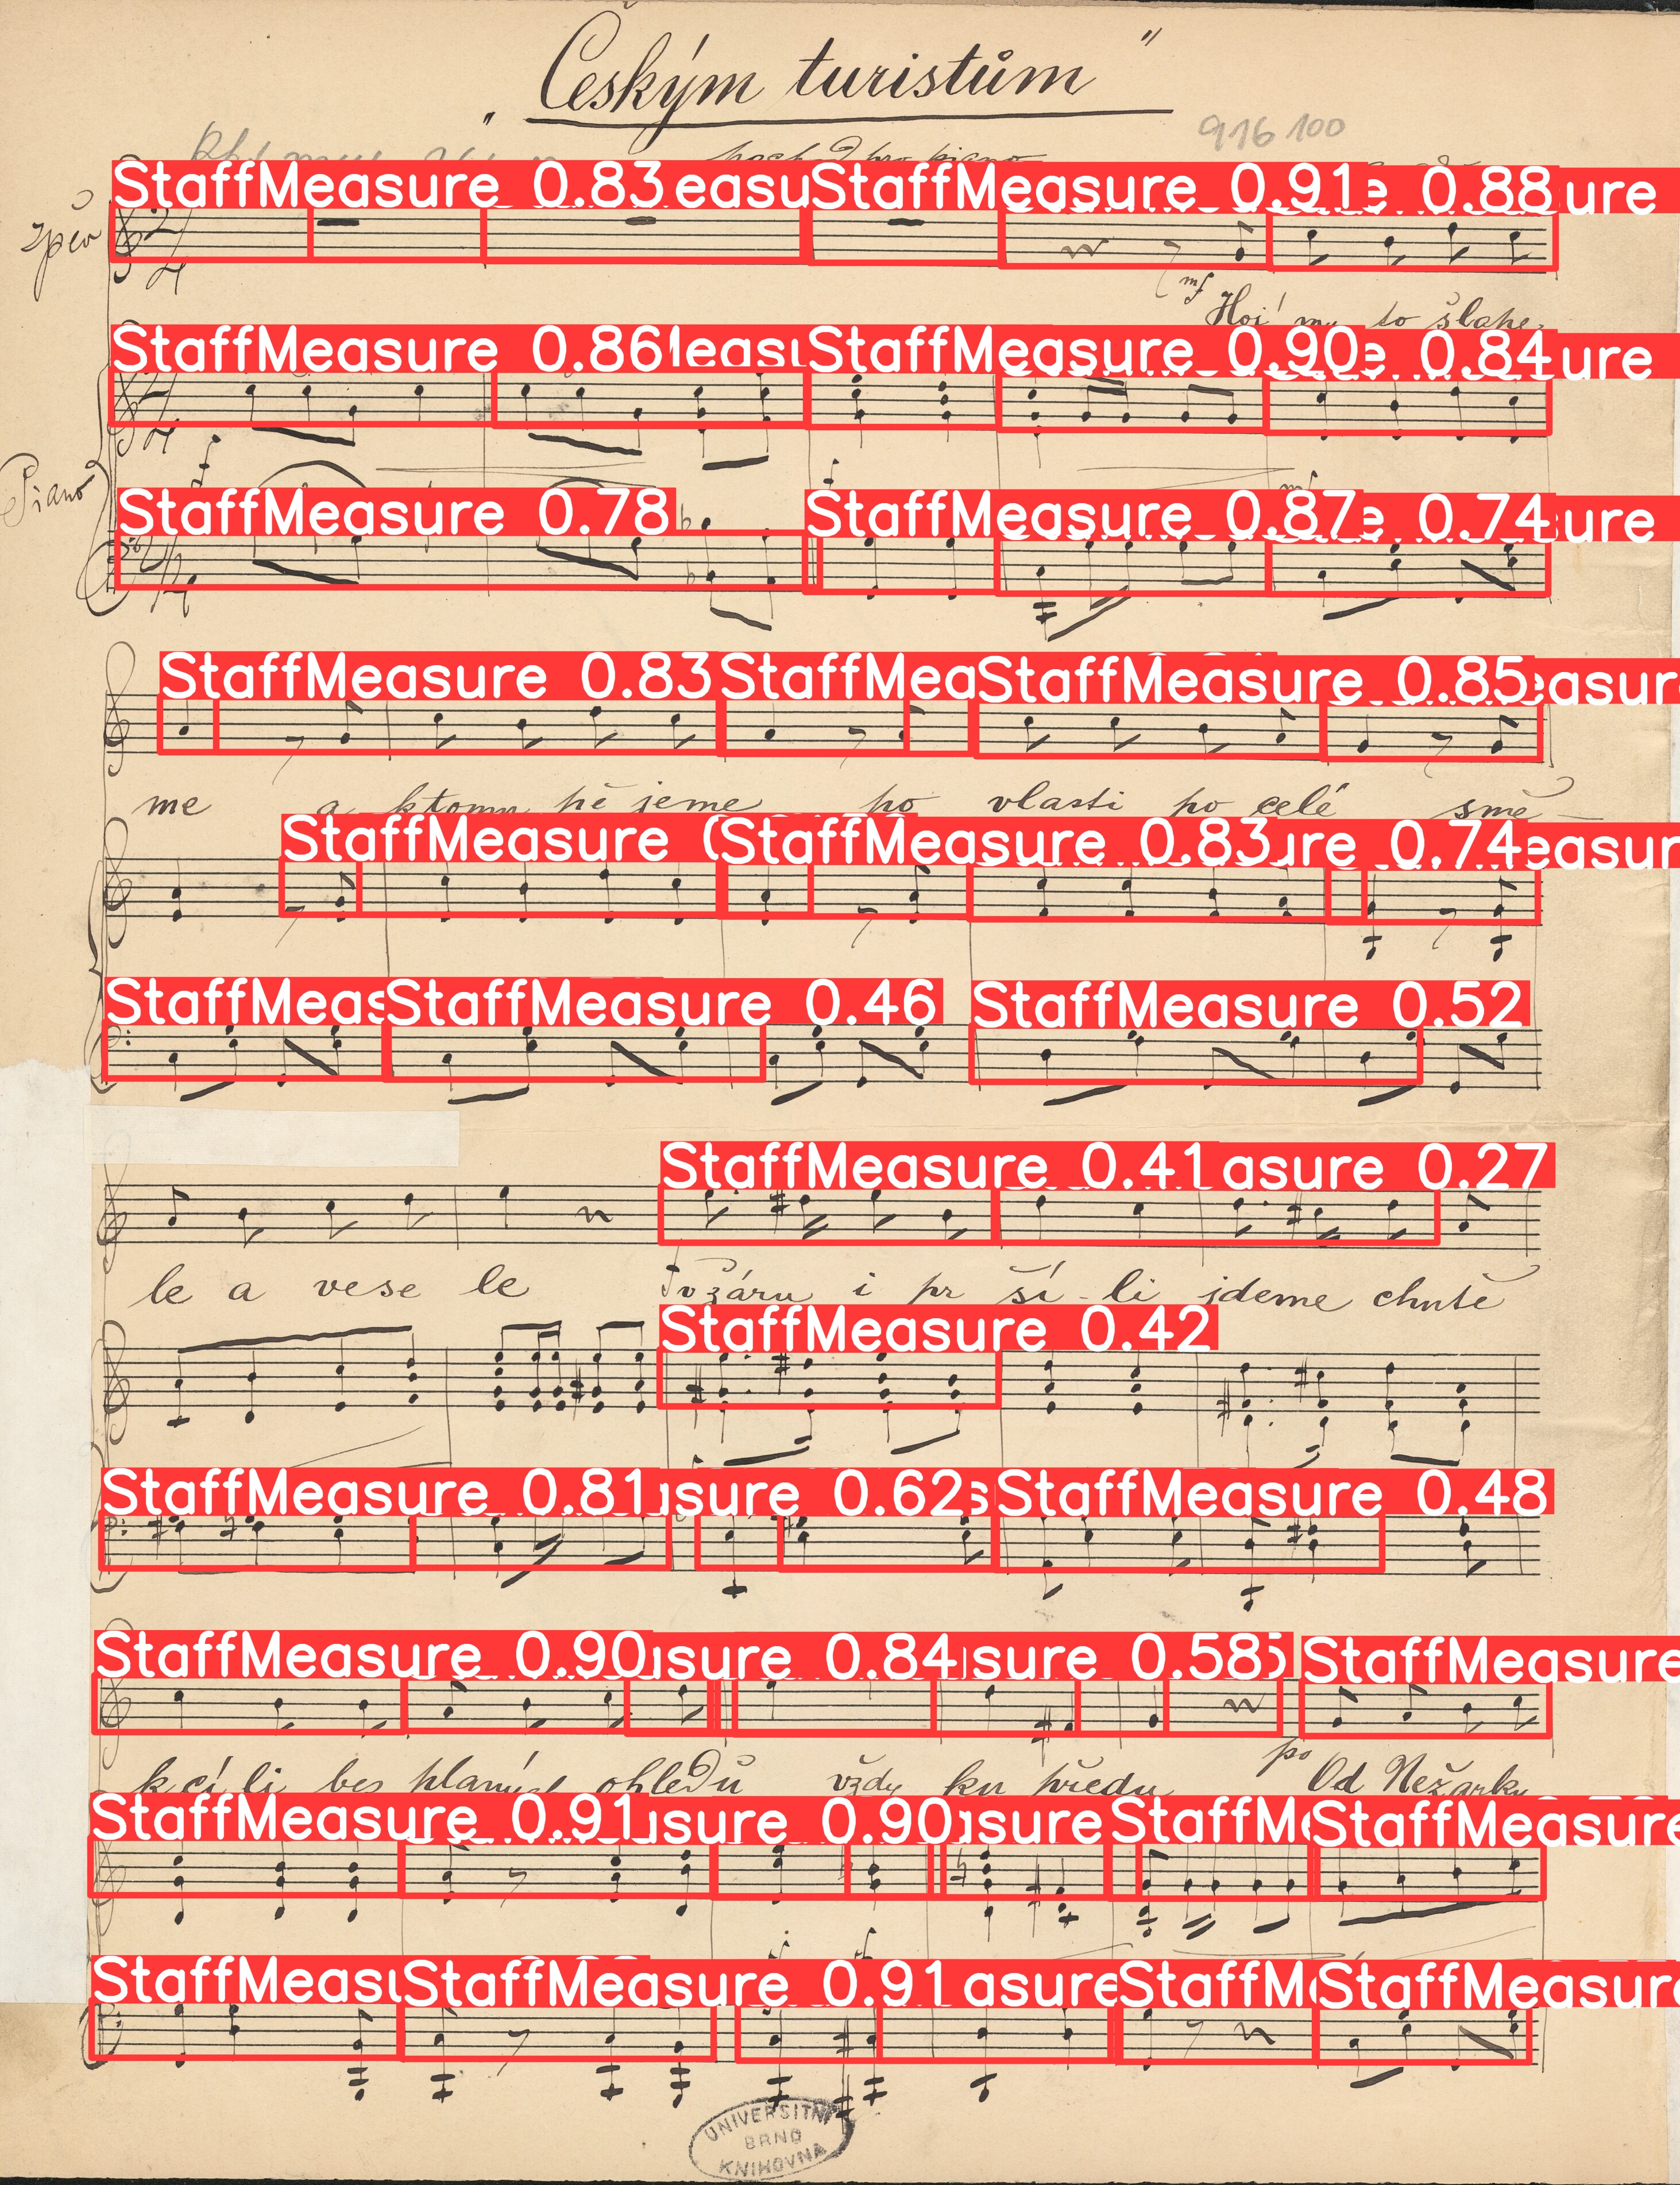 „Českým turistům"
916 100
pro piano
StaffMeasure 0.83 easu StaffMeasure 0.91 e 0.88 ure
Zpěv
mf
Hoj! my to šlape
StaffMeasure 0.86 Measu StaffMeasure 0.90 e 0.84 ure
Piano
f
f
mf
StaffMeasure 0.78 StaffMeasure 0.87 e 0.74 ure
StaffMeasure 0.83 StaffMea StaffMeasure 0.85 easur
me a ktomu pě jeme po vlasti po celé smě –
StaffMeasure StaffMeasure 0.83 ure 0.74 easur
StaffMeas StaffMeasure 0.46 StaffMeasure 0.52
StaffMeasure 0.41 asure 0.27
le a vese le i pr ší - li jdeme chutě
StaffMeasure 0.42
StaffMeasure 0.81 sure 0.62 s StaffMeasure 0.48
StaffMeasure 0.90 sure 0.84 sure 0.58 StaffMeasure
k cí li bez planých ohledů vždy ku předu Od Nežárky
StaffMeasure 0.91 sure 0.90 sure StaffMe StaffMeasure
StaffMeasu StaffMeasure 0.91 asure StaffM StaffMeasure
UNIVERSITNÍ
BRNO
KNIHOVNA